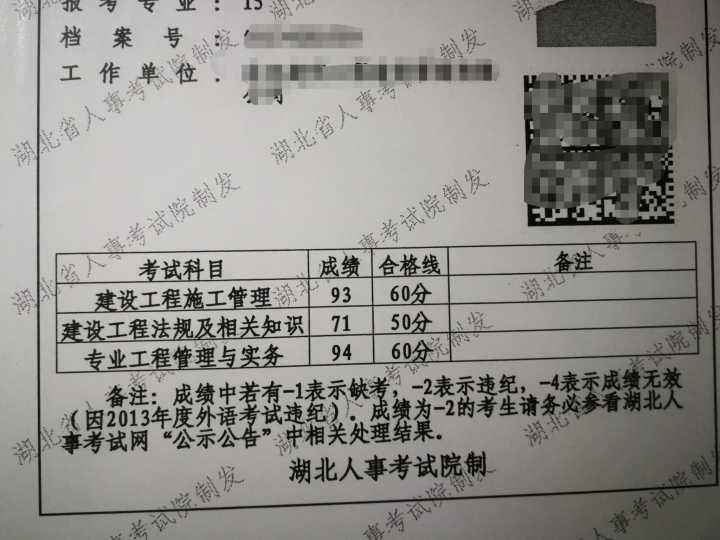 报考专业：15
档案号：
工作单位：
考试科目 成绩 合格线 备注
建设工程施工管理 93 60分
建设工程法规及相关知识 71 50分
专业工程管理与实务 94 60分
备注：成绩中若有-1表示缺考，-2表示违纪，-4表示成绩无效
（因2013年度外语考试违纪）。成绩为-2的考生请务必参看湖北人
事考试网“公示公告”中相关处理结果。
湖北人事考试院制
湖北省人事考试院制发
湖北省人事考试院制发
湖北省人事考试院制发
湖北省人事考试院制发